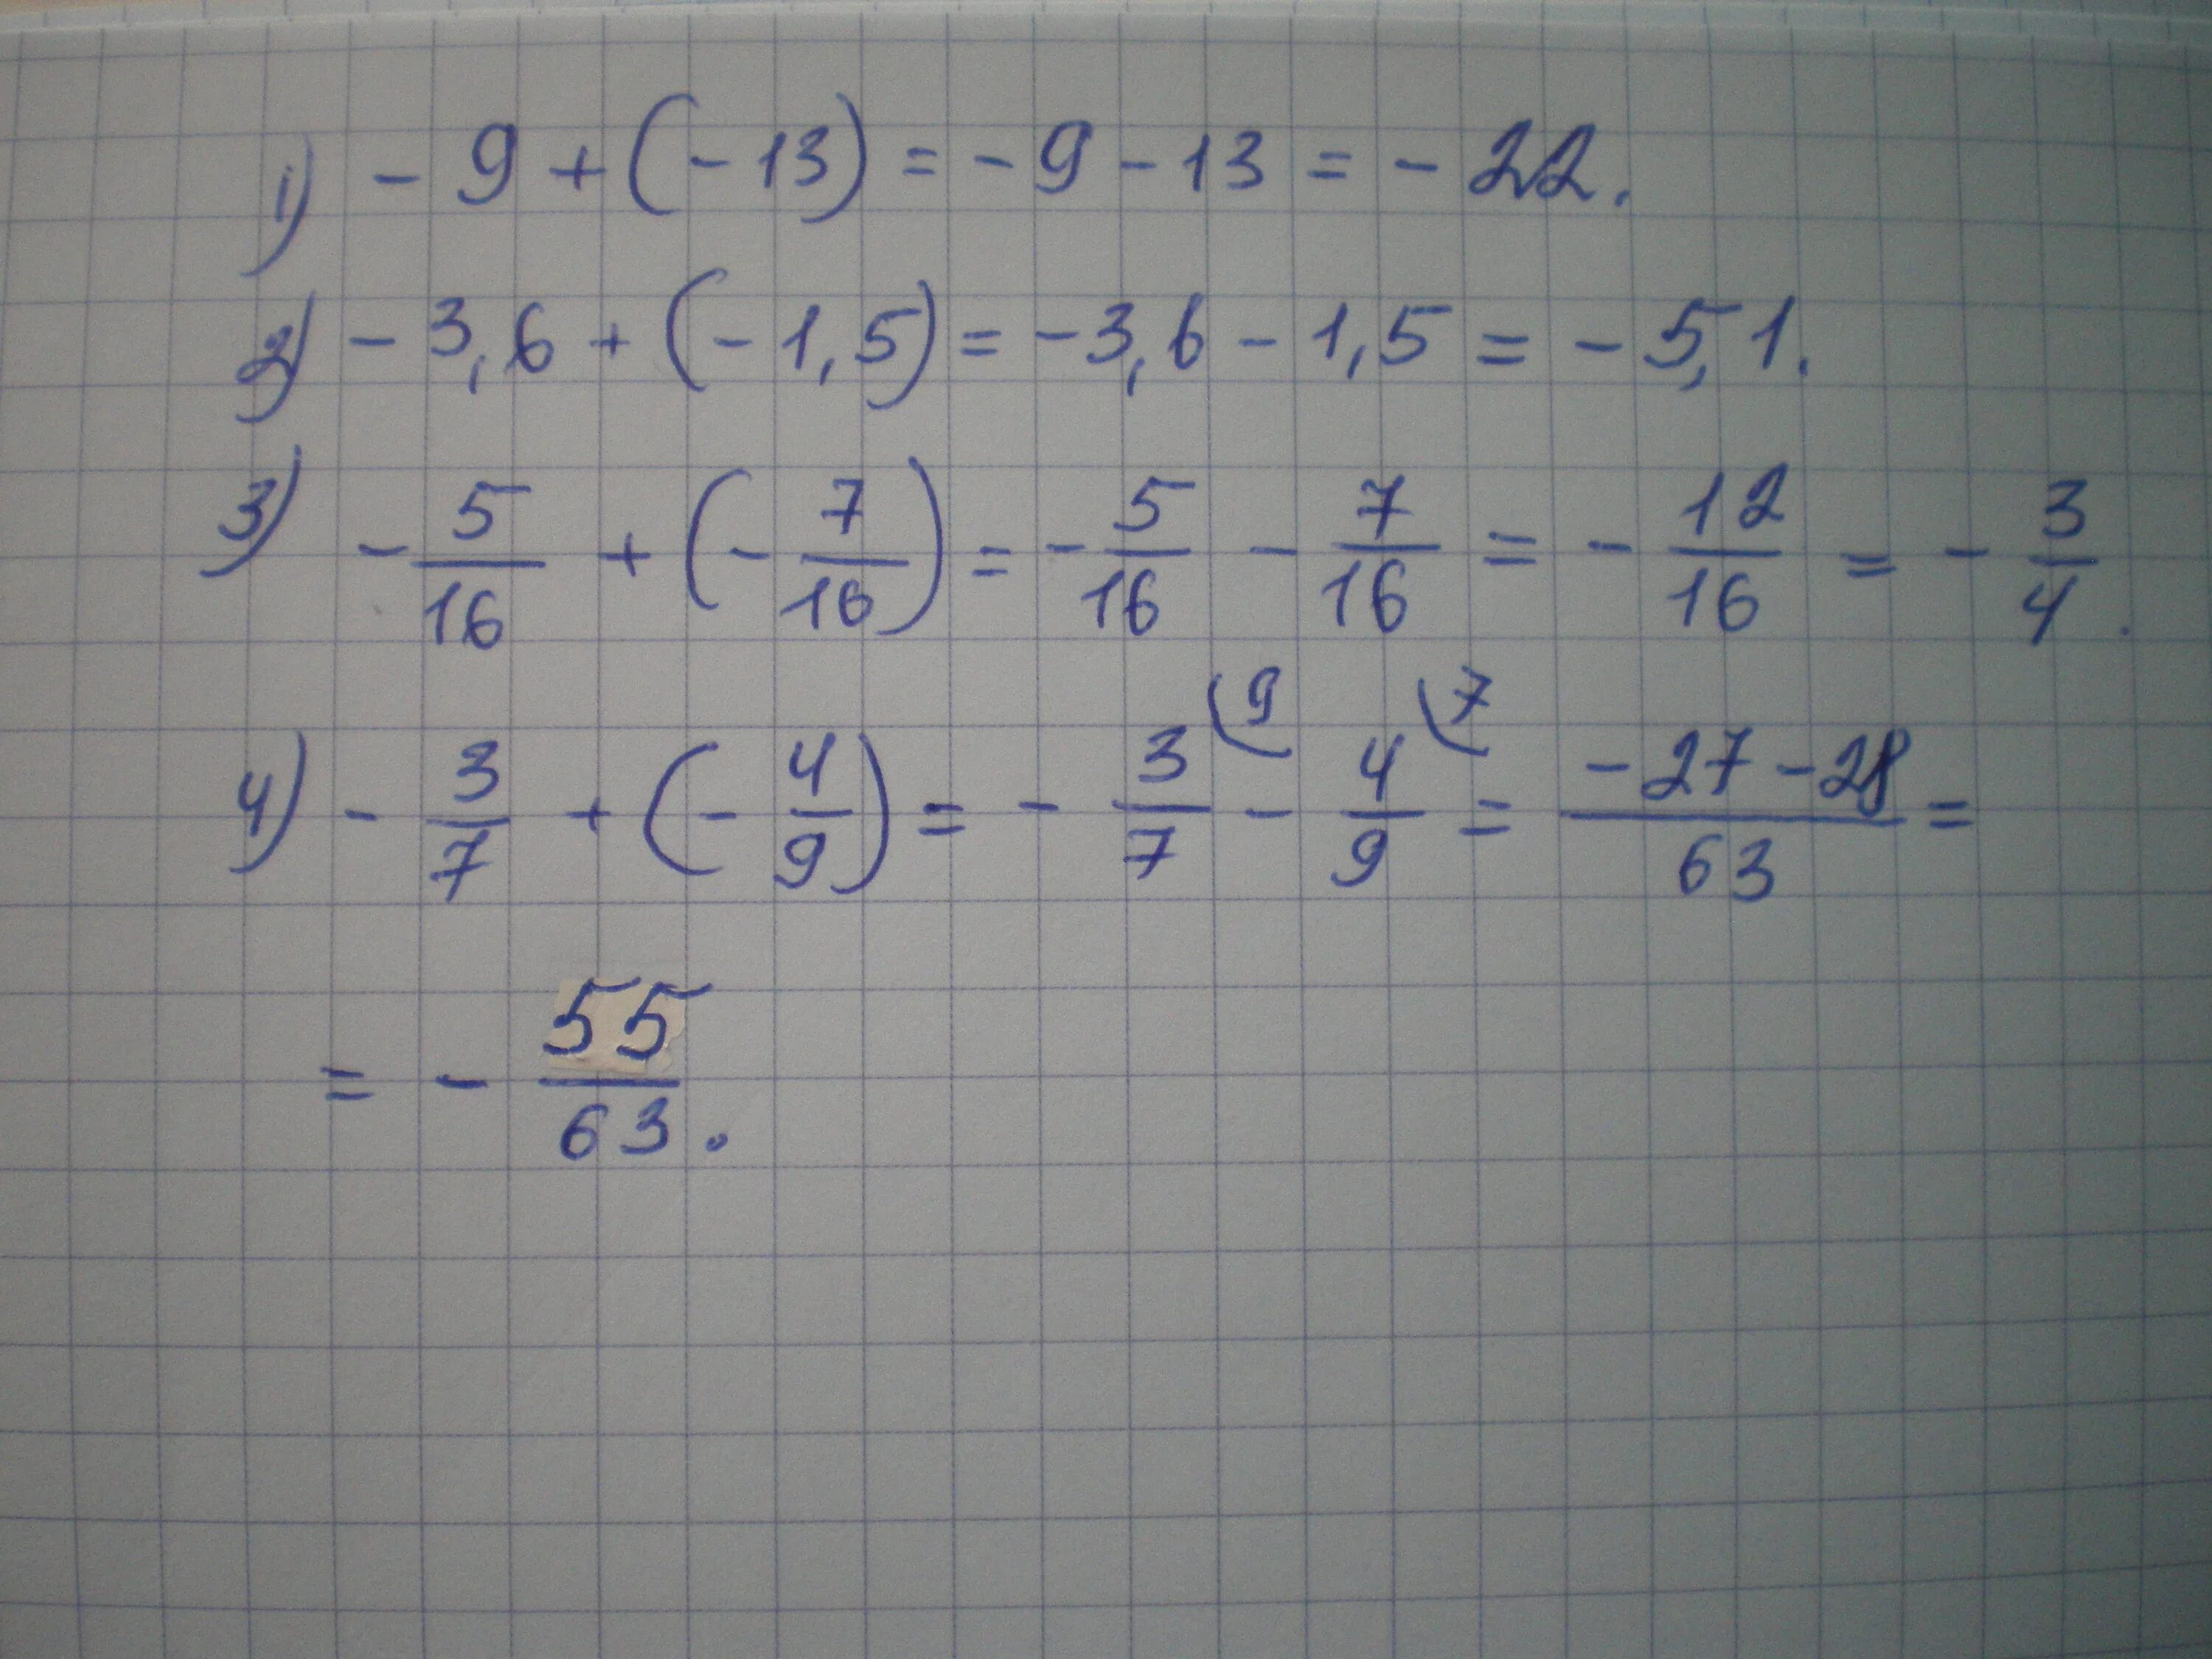 1) - 9 + (- 13) = - 9 - 13 = - 22.
2) - 3,6 + (- 1,5) = - 3,6 - 1,5 = - 5,1.
3) - 5/16 + (- 7/16) = - 5/16 - 7/16 = - 12/16 = - 3/4.
4) - 3/7 + (- 4/9) = - 3/7 (9 - 4/9 (7 = - 27 - 28/63 =
= - 55/63.